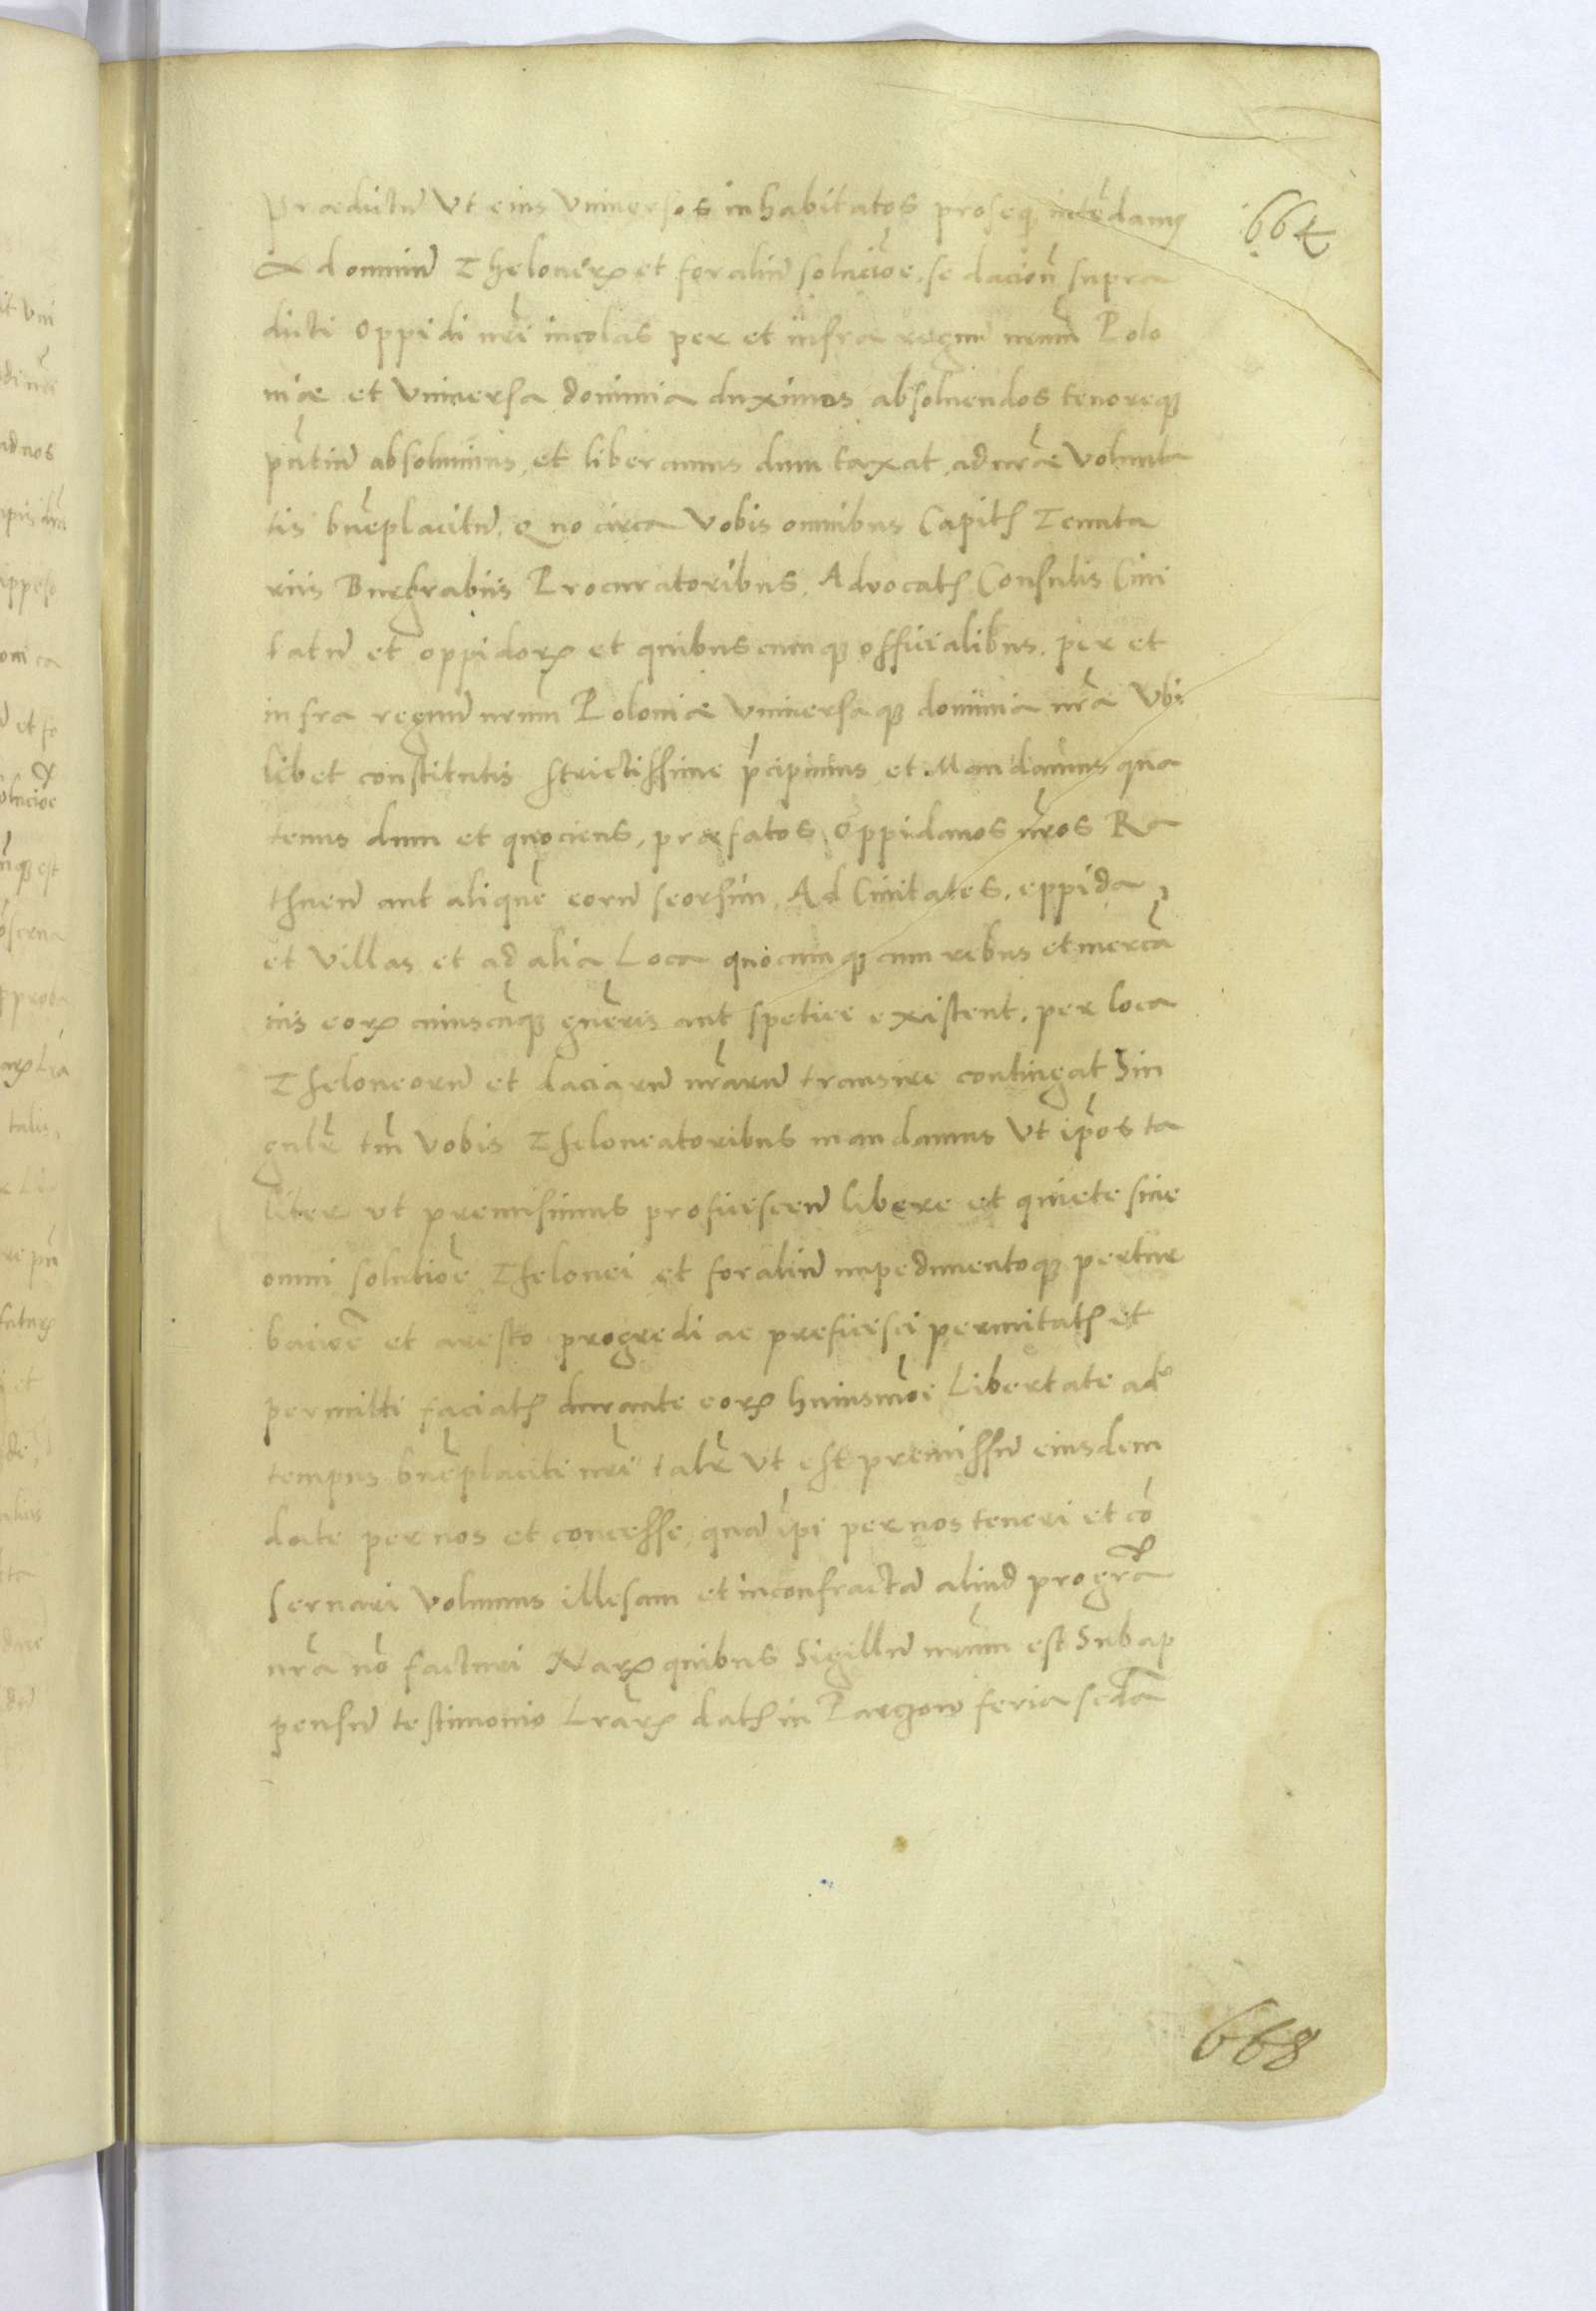 Praedictū Vt eius Vniversos inhabitatos proseq intēdamꝰ
A d omniū Theloneorꝝ et foraliū solucioe, se dacionū supra
dicti Oppidi nr̄i incolas per et infra regnū nrum̄ Polo
niae et Vniuersa dominia duximus absoluendos tenoreqꝫ
pn̄tiū absoluimus, et liberamus dum taxat, ad nrāe Volunta
tis bn̄eplacitū, Q no circa Vobis omnibus Capitꝭ Tenuta
riis Burgrabiis Procuratoribus, Advocatꝭ Consulis Ciui
tatū et oppidorꝝ et quibuscunqꝫ officialibus, per et
infra regnū nrum Poloniae Vniuersaqꝫ dominia nrā Vbi
libet constitutis strictissime pcipimus et Mandamus qua
tenus dum et quociens, praefatos Oppidanos nr̄os Ra
thnen̄ aut aliquē eorū seorsim, Ad Ciuitates, oppida,
et Villas et ad alia Loca quocunqꝫ cum rebus et mercā
tiis eorꝝ cuiuscūqꝫ gn̄eris aut spetiei existent, per loca
Theloneorū et daciarū nrārū transire contingat Sin
gulr̄ tm̄ Vobis Theloneatoribus mandamus Vt ip̄os ta
liter vt premisimus proficiscen̄ libere et quiete sine
omni solutioē Thelonei et foraliū impedimentoqꝫ pertur
bacioē et aresto progredi ac proficisci permitatꝭ et
permitti faciatꝭ durante eorꝝ huiusmōi Libertate ad
tempus bn̄eplaciti nr̄i talr̄ Vt est premissū eiusdem
date per nos et concesse, quā ip̄i per nos teneri et cō
seruari Volumus illesam et inconfractā aliud pro gr̄a
nrā nō facturi Harꝝ quibus Sigillū nrum̄ est Subap
pensū testimonio Lrārꝝ datꝭ in Parczow feria sēda
664
668